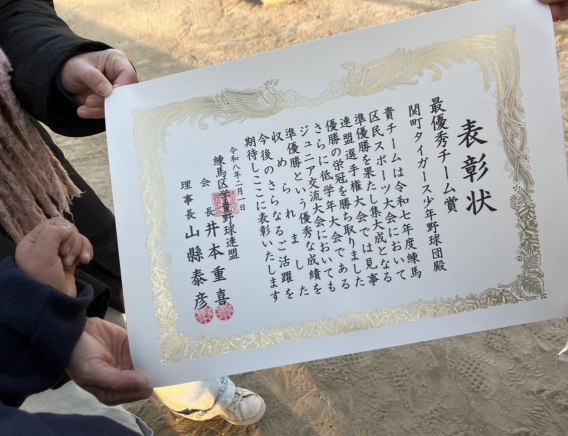 表彰状
最優秀チーム賞
関町タイガース少年野球団殿
貴チームは令和七年度練馬
区民スポーツ大会において
準優勝を果たし集大成となる
連盟選手権大会では見事
優勝の栄冠を勝ち取りました
さらに低学年大会である
ジュニア交流大会においても
準優勝という優秀な成績を
収められました
今後のさらなるご活躍を
期待しここに表彰いたします
令和八年二月一日
練馬区学童野球連盟
会長 井本重喜
理事長 山縣泰彦